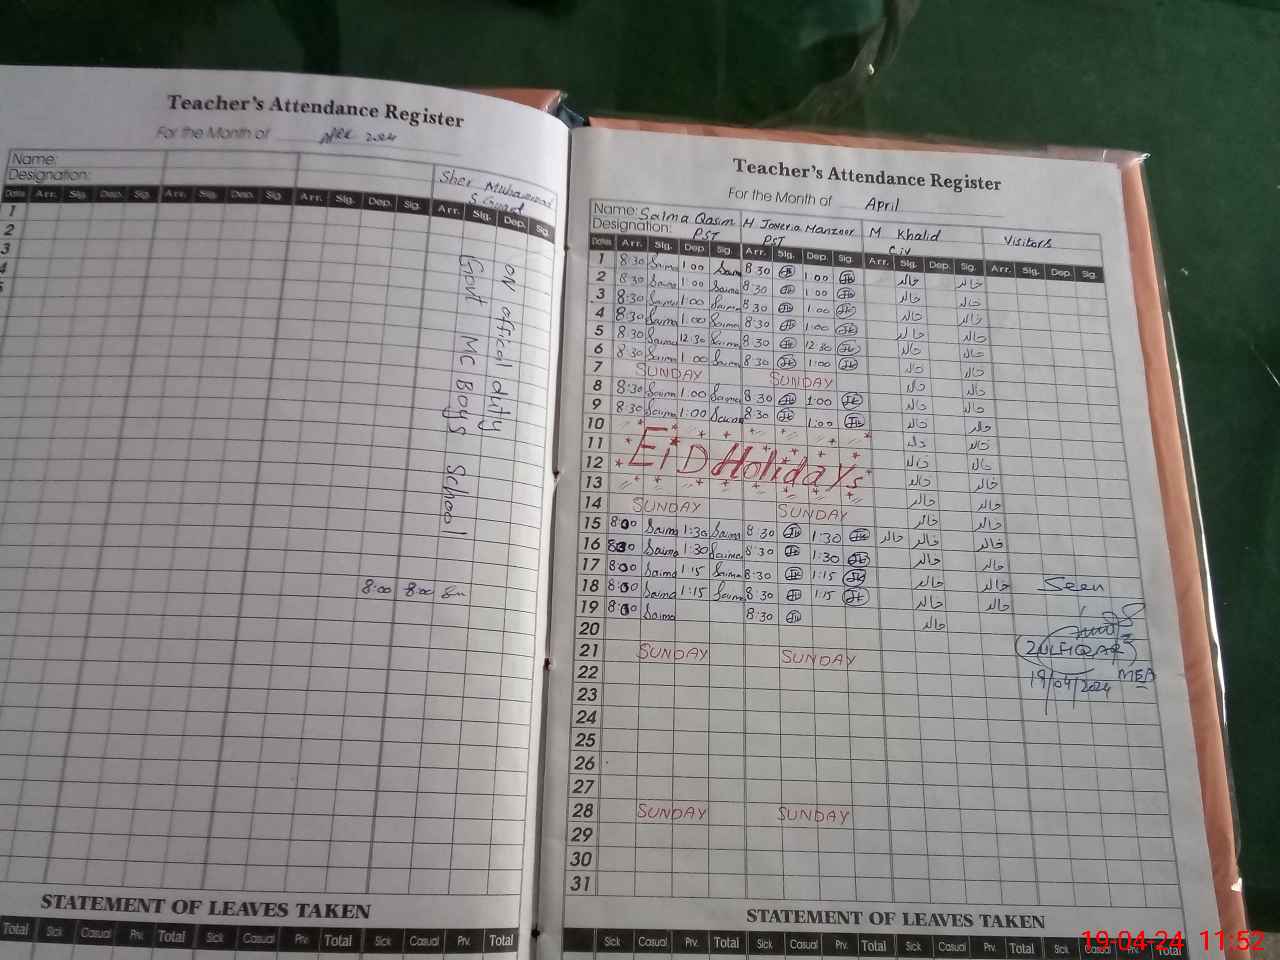 Teacher's Attendance Register
For the Month of APRL 2024
Name:
Designation:
Sher Muhammad
S. Guard
Dates Arr. Sig. Dep. Sig. Arr. Sig. Dep. Sig. Arr. Sig. Dep. Sig. Arr. Sig. Dep. Sig.
1
2
3
4
5
ON offical duty
Govt MC Boys School
8:00 8:00
STATEMENT OF LEAVES TAKEN
Total Sick Casual Prv. Total Sick Casual Prv. Total Sick Casual Prv. Total
Teacher's Attendance Register
For the Month of April
Name: Salma Qasim H Joveria Manzoor M Khalid Visitors
Designation: PST PST C iv
Dates Arr. Sig. Dep. Sig. Arr. Sig. Dep. Sig. Arr. Sig. Dep. Sig. Arr. Sig. Dep. Sig.
1 8:30 Saima 1:00 Saima 8:30 1:00 خالد خالد
2 8:30 Saima 1:00 Saima 8:30 1:00 خالد خالد
3 8:30 Saima 1:00 Saima 8:30 1:00 خالد خالد
4 8:30 Saima 1:00 Saima 8:30 1:00 خالد خالد
5 8:30 Saima 12:30 Saima 8:30 12:30 خالد خالد
6 8:30 Saima 1:00 Saima 8:30 1:00 خالد خالد
7 SUNDAY SUNDAY خالد خالد
8 8:30 Saima 1:00 Saima 8:30 1:00 خالد خالد
9 8:30 Saima 1:00 Saima 8:30 1:00 خالد خالد
10 خالد خالد
11 خالد خالد
12 EiD Holidays خالد خالد
13 خالد خالد
14 SUNDAY SUNDAY خالد خالد
15 8:00 Saima 1:30 Saima 8:30 1:30 خالد خالد خالد
16 8:30 Saima 1:30 Saima 8:30 1:30 خالد خالد
17 8:00 Saima 1:15 Saima 8:30 1:15 خالد خالد
18 8:00 Saima 1:15 Saima 8:30 1:15 خالد خالد
19 8:00 Saima 8:30 خالد
20
21 SUNDAY SUNDAY
22
23
24
25
26
27
28 SUNDAY SUNDAY
29
30
31
Seen
ZULFIQAR
MEA
19/04/2024
STATEMENT OF LEAVES TAKEN
Sick Casual Prv. Total Sick Casual Prv. Total Sick Casual Prv. Total Sick Casual Prv. Total
19-04-24 11:52